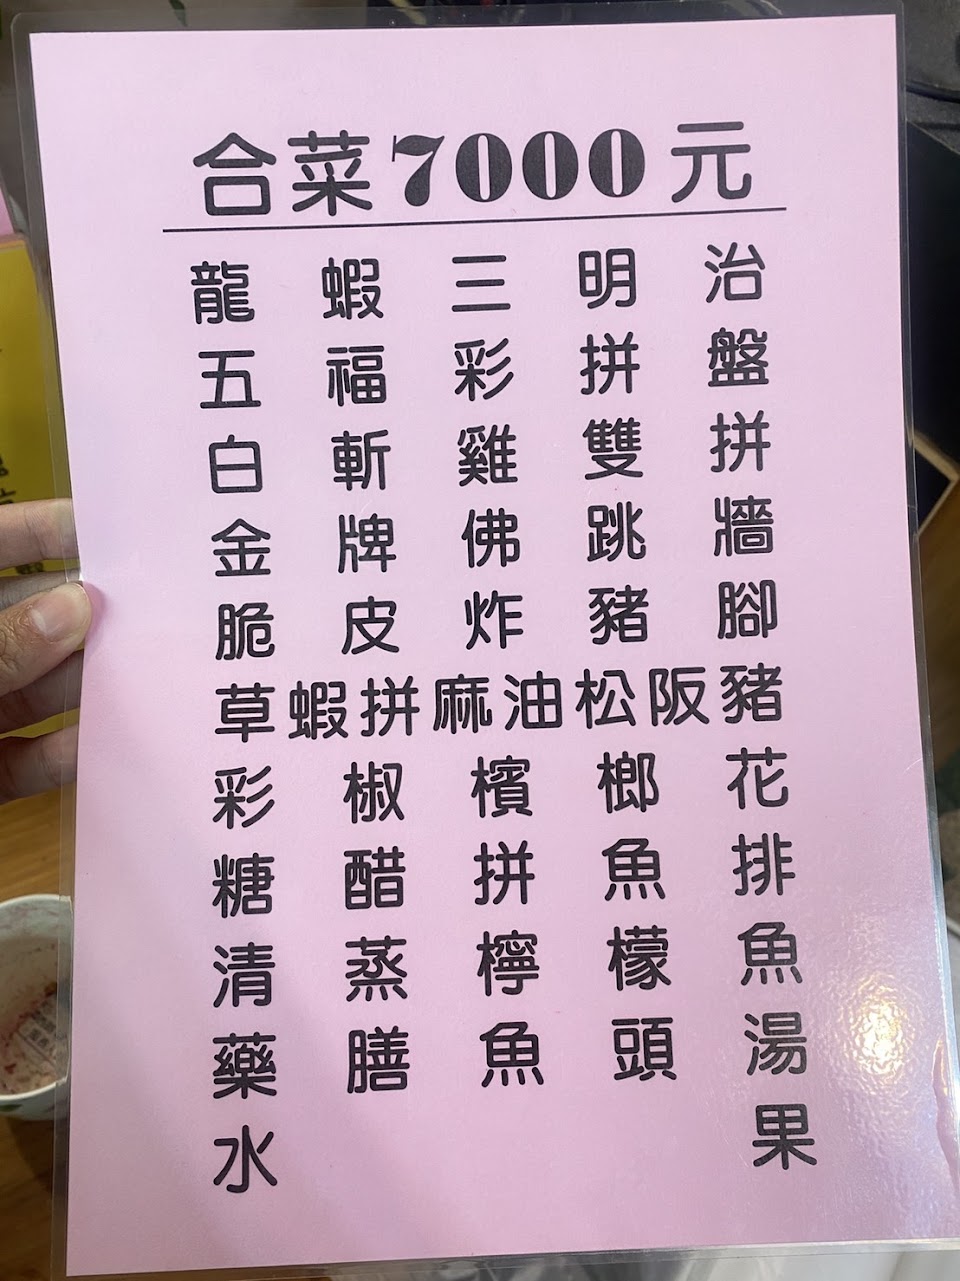 合菜7000元
龍蝦三明治
五福彩拼盤
白斬雞雙拼
金牌佛跳牆
脆皮炸豬腳
草蝦拼麻油松阪豬
彩椒檳榔花
糖醋拼魚排
清蒸檸檬魚
藥膳魚頭湯
水果